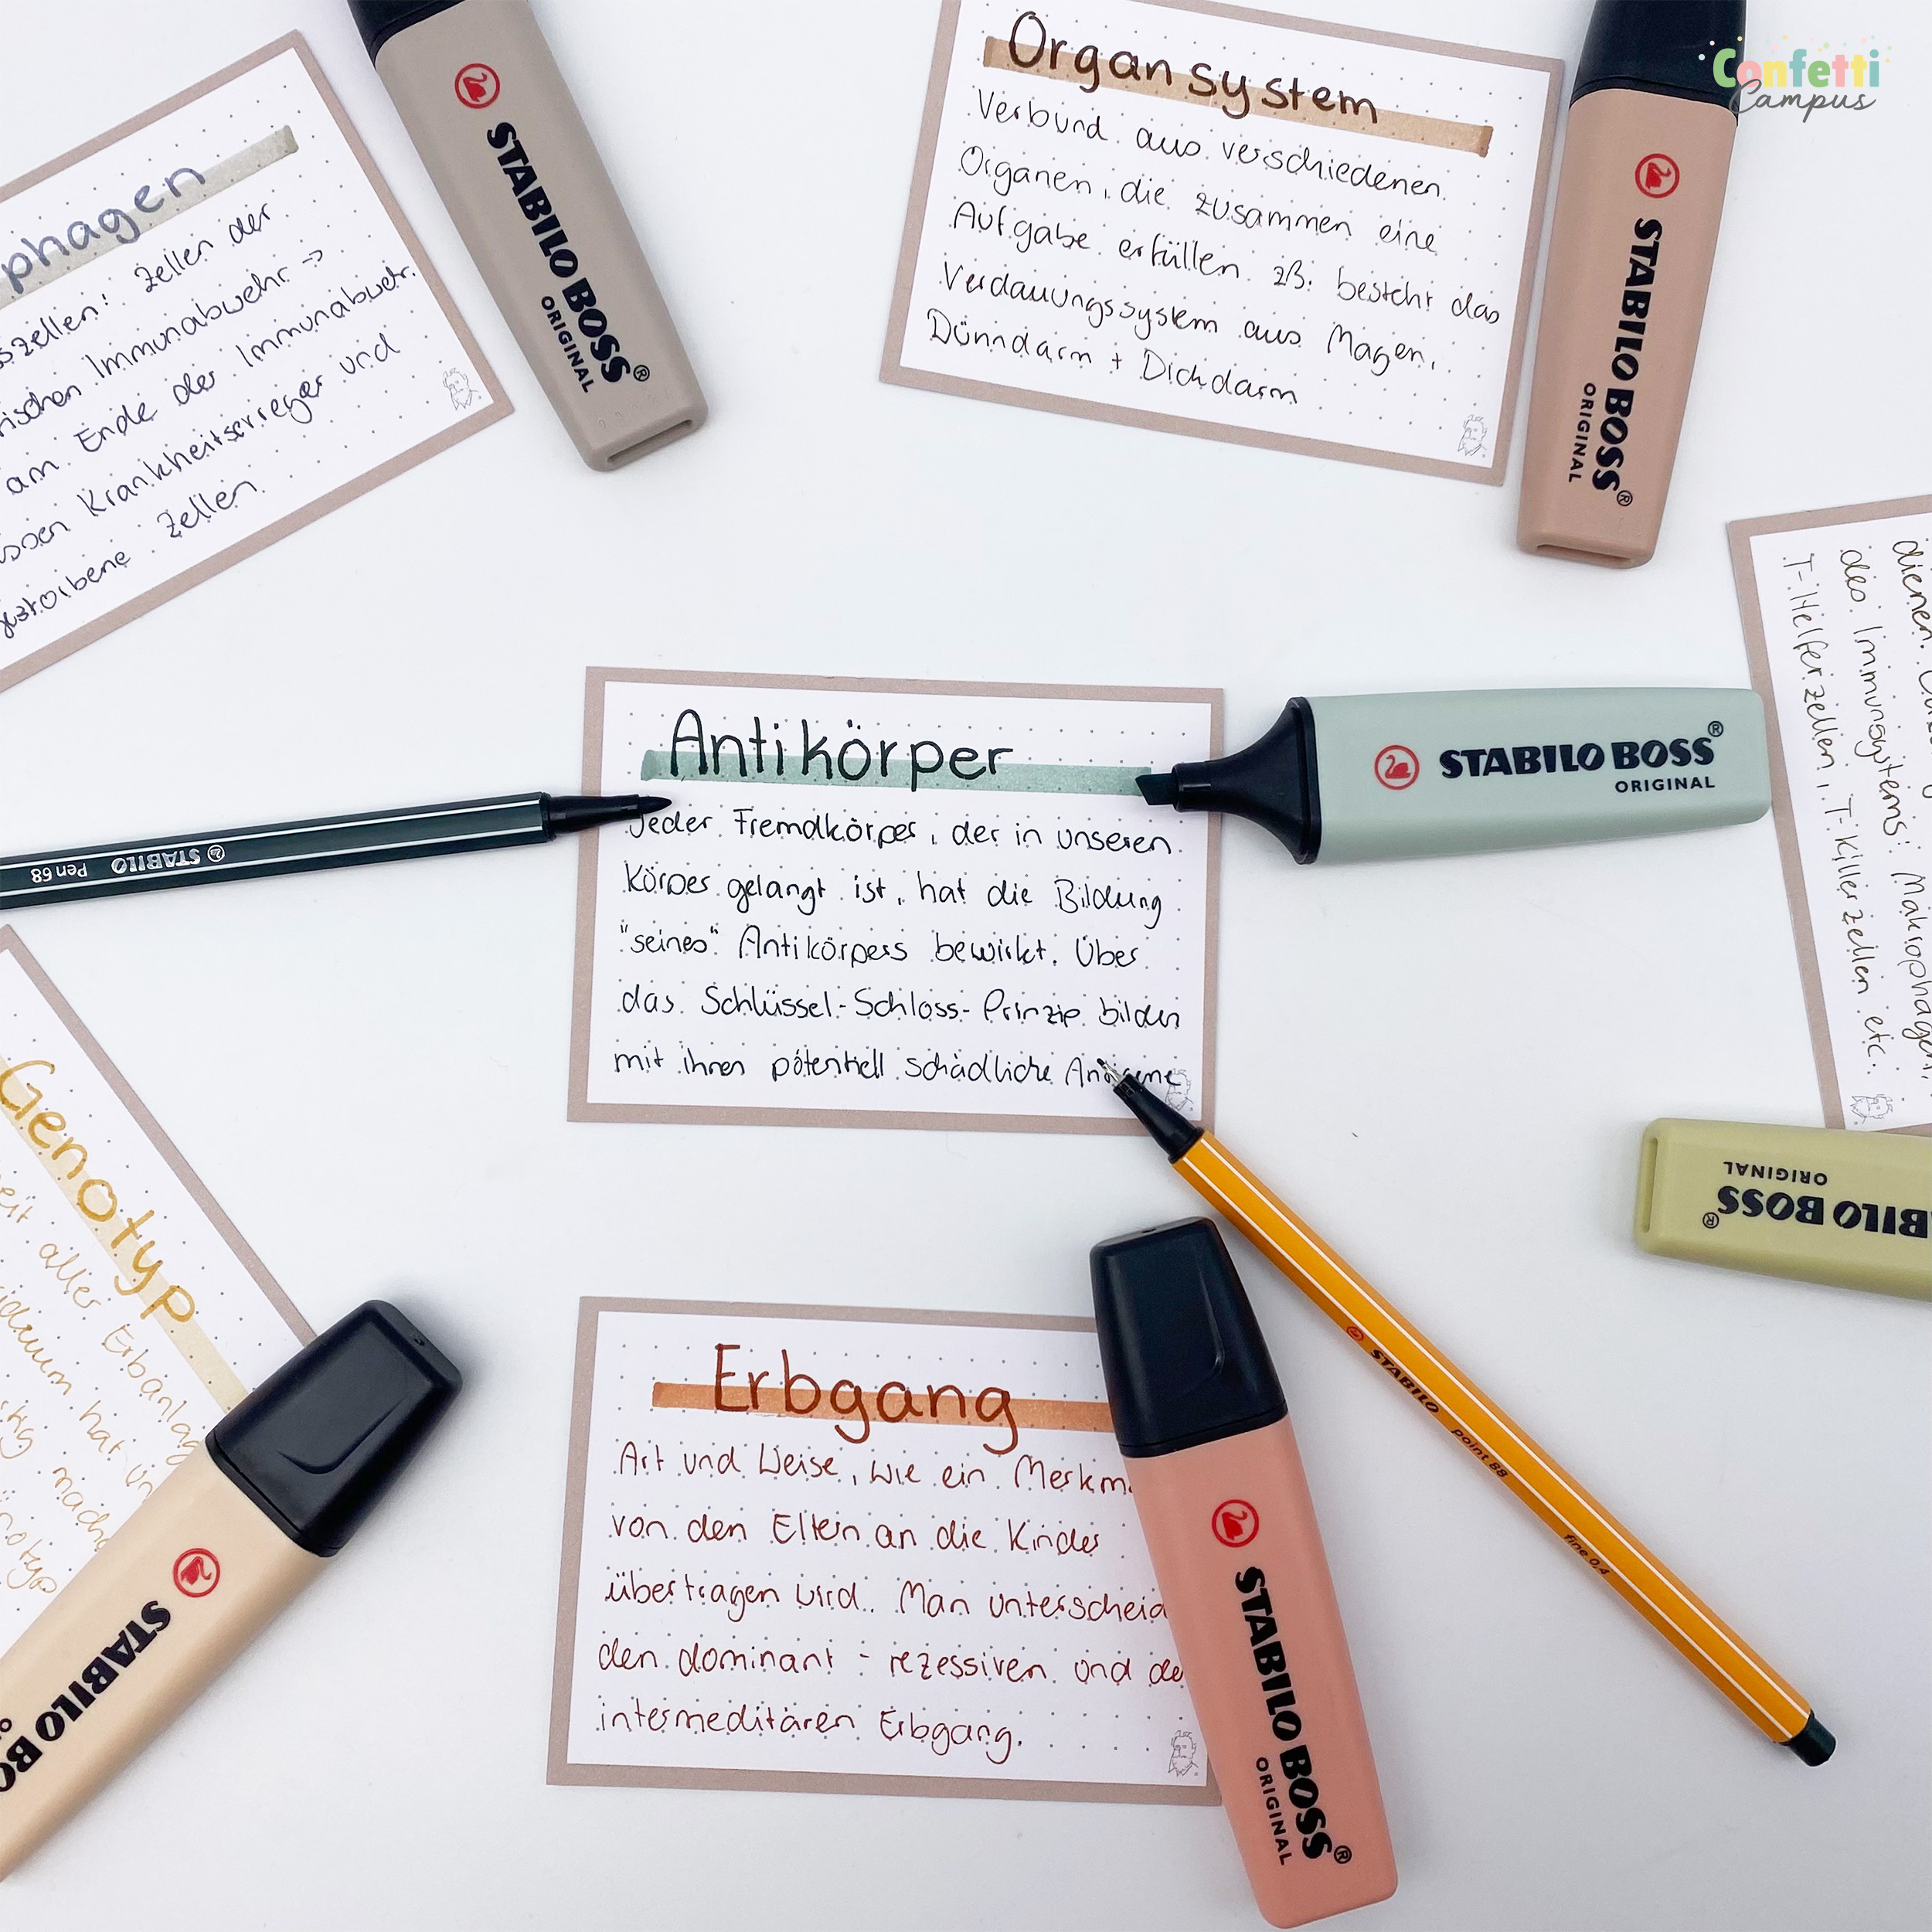 Confetti
Campus
phagen
Zellen der
Immunabwehr →
am Ende der Immunabwehr.
Krankheitserreger und
Zellen
STABILO BOSS®
ORIGINAL
Organsystem
Verbund aus verschiedenen
Organen, die zusammen eine
Aufgabe erfüllen. zB. besteht das
Verdauungssystem aus Magen,
Dünndarm + Dickdarm
STABILO BOSS®
ORIGINAL
dienen
des Immunsystems: Makrophagen,
T-Helferzellen, T-Killerzellen etc.
Antikörper
Jeder Fremdkörper, der in unseren
Körper gelangt ist, hat die Bildung
"seines" Antikörpers bewirkt. Über
das Schlüssel-Schloss-Prinzip bilden
mit ihnen potentiell schädliche Antigene
STABILO BOSS®
ORIGINAL
STABILO Pen 68
Genotyp
aller Erbanlag
hat
STABILO
BILO BOSS®
ORIGINAL
STABILO point 88 fine 0,4
Erbgang
Art und Weise, wie ein Merkm
von den Eltern an die Kinder
übertragen wird. Man unterscheid
den dominant - rezessiven und de
intermeditären Erbgang.
STABILO BOSS®
ORIGINAL